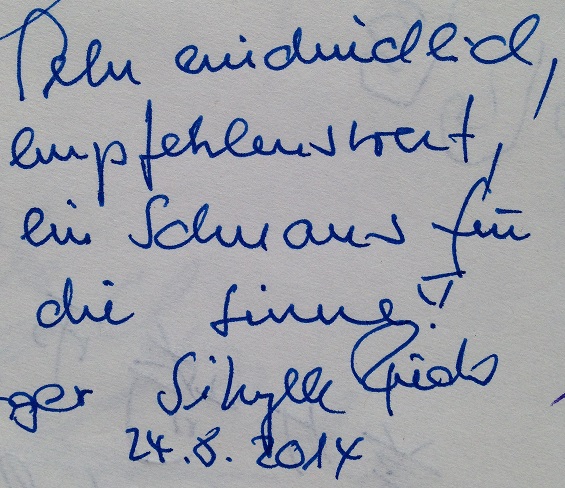 Sehr eindrücklich,
empfehlenswert,
ein Schmaus für
die Sinne!!
ger Sibylle
24.8.2014